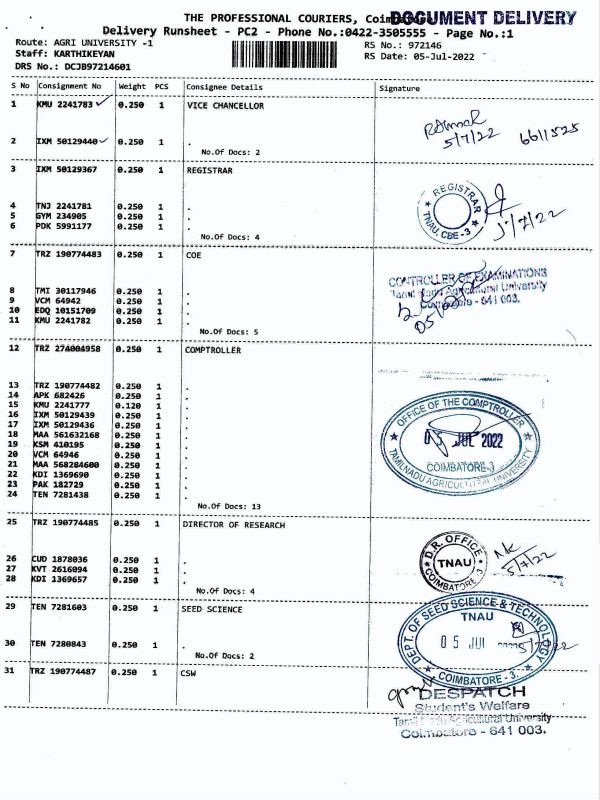 THE PROFESSIONAL COURIERS, Coimbatore
DOCUMENT DELIVERY
Delivery Runsheet - PC2 - Phone No.:0422-3505555 - Page No.:1
Route: AGRI UNIVERSITY -1
RS No.: 972146
Staff: KARTHIKEYAN
RS Date: 05-Jul-2022
DRS No.: DCJB97214601
S No Consignment No Weight PCS Consignee Details Signature
1 KMU 2241783 0.250 1 VICE CHANCELLOR
5/7/22 6611525
2 IXM 50129440 0.250 1 .
No.Of Docs: 2
3 IXM 50129367 0.250 1 REGISTRAR
REGISTRAR
TNAU, CBE-3
5/7/22
4 TNJ 2241781 0.250 1 .
5 GYM 234905 0.250 1 .
6 PDK 5991177 0.250 1 .
No.Of Docs: 4
7 TRZ 190774483 0.250 1 COE
CONTROLLER OF EXAMINATIONS
Tamil Nadu Agricultural University
Coimbatore - 641 003.
8 TMI 30117946 0.250 1 .
9 VCM 64942 0.250 1 .
10 EDQ 10151709 0.250 1 .
11 KMU 2241782 0.250 1 .
No.Of Docs: 5
12 TRZ 274004958 0.250 1 COMPTROLLER
13 TRZ 190774482 0.250 1 .
14 APK 682426 0.250 1 .
15 KMU 2241777 0.120 1 .
16 IXM 50129439 0.250 1 .
17 IXM 50129436 0.250 1 .
18 MAA 561632168 0.250 1 .
19 KSM 410195 0.250 1 .
20 VCM 64946 0.250 1 .
21 MAA 568284600 0.250 1 .
22 KDI 1369690 0.250 1 .
23 PAK 182729 0.250 1 .
24 TEN 7281438 0.250 1 .
No.Of Docs: 13
OFFICE OF THE COMPTROLLER
05 JUL 2022
COIMBATORE-3
TAMILNADU AGRICULTURAL UNIVERSITY
25 TRZ 190774485 0.250 1 DIRECTOR OF RESEARCH
D.R. OFFICE
TNAU
COIMBATORE-3
5/7/22
26 CUD 1878036 0.250 1 .
27 KVT 2616094 0.250 1 .
28 KDI 1369657 0.250 1 .
No.Of Docs: 4
29 TEN 7281603 0.250 1 SEED SCIENCE
DEPT. OF SEED SCIENCE & TECHNOLOGY
TNAU
05 JUL
COIMBATORE - 3.
30 TEN 7280843 0.250 1 .
No.Of Docs: 2
31 TRZ 190774487 0.250 1 CSW
DESPATCH
Student's Welfare
Tamil Nadu Agricultural University
Coimbatore - 641 003.